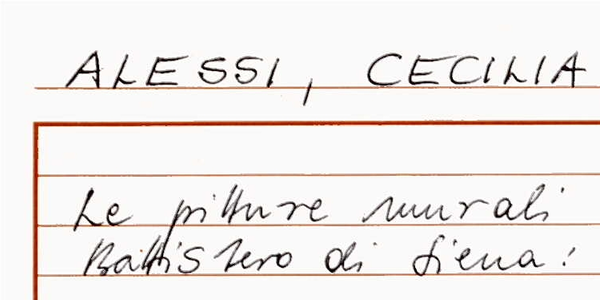 ALESSI, CECILIA
Le pitture murali
Battistero di Siena: